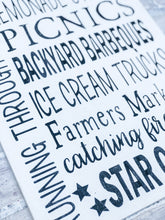 PICNICS
BACKYARD BARBEQUES
ICE CREAM TRUCK
Farmers Mark
catching fi
STAR
RUNNING THROUGH